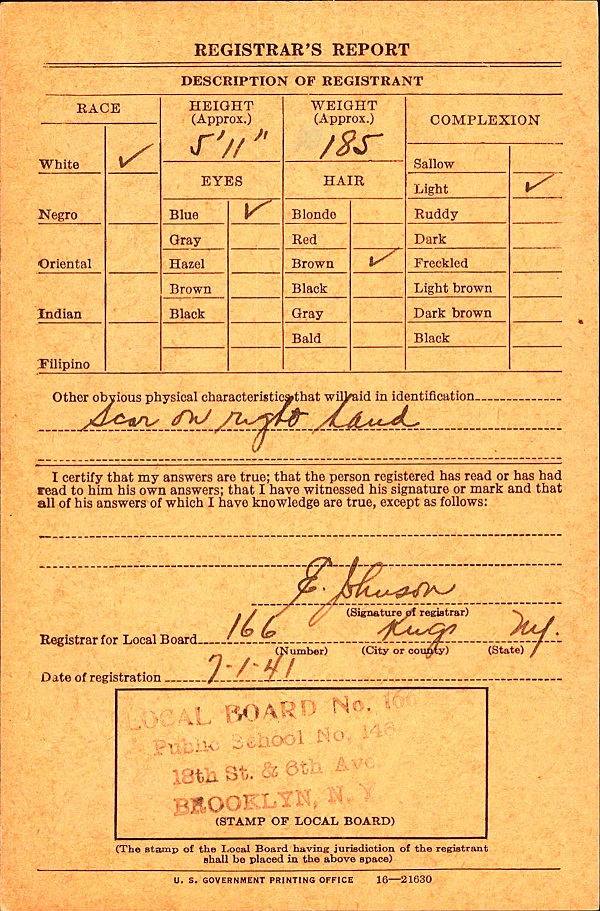 REGISTRAR'S REPORT
DESCRIPTION OF REGISTRANT
RACE
HEIGHT
(Approx.)
WEIGHT
(Approx.)
COMPLEXION
5'11"
185
White ✓
EYES
HAIR
Sallow
Light ✓
Negro
Blue ✓
Blonde
Ruddy
Gray
Red
Dark
Oriental
Hazel
Brown ✓
Freckled
Brown
Black
Light brown
Indian
Black
Gray
Dark brown
Bald
Black
Filipino
Other obvious physical characteristics that will aid in identification
Scar on right hand
I certify that my answers are true; that the person registered has read or has had
read to him his own answers; that I have witnessed his signature or mark and that
all of his answers of which I have knowledge are true, except as follows:
E. Johnson
(Signature of registrar)
Registrar for Local Board 166 Kings N.Y.
(Number) (City or county) (State)
Date of registration 7-1-41
LOCAL BOARD No. 166
Public School No. 146
18th St. & 6th Ave.
BROOKLYN, N. Y.
(STAMP OF LOCAL BOARD)
(The stamp of the Local Board having jurisdiction of the registrant
shall be placed in the above space)
U. S. GOVERNMENT PRINTING OFFICE 16—21630